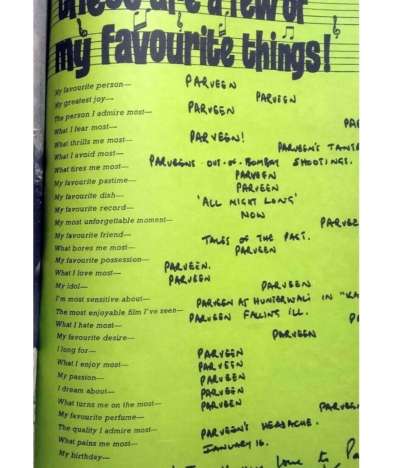 these are a few of
my favourite things!
My favourite person— PARVEEN
My greatest joy— PARVEEN
The person I admire most— PARVEEN
What I fear most— PAR
What thrills me most— PARVEEN!
What I avoid most— PARVEEN'S TANTR
What tires me most— PARVEENS OUT-OF-BOMBAY SHOOTINGS.
My favourite pastime— PARVEEN
My favourite dish— PARVEEN
My favourite record— 'ALL NIGHT LONG'
My most unforgettable moment— NOW
My favourite friend— PARVEE
What bores me most— TALES OF THE PAST.
My favourite possession— PARVEEN
What I love most— PARVEEN.
My idol— PARVEEN
I'm most sensitive about— PARVEEN
The most enjoyable film I've seen— PARVEEN AT HUNTERWALI IN "KA
What I hate most— PARVEEN FALLING ILL.
My favourite desire— P
I long for— PARVEEN
What I enjoy most— PARVEEN
My passion— PARVEEN
I dream about— PARVEEN
What turns me on the most— PARVEEN
My favourite perfume— PARVEEN
The quality I admire most— PARVEEN
What pains me most— PARVEEN'S HEADACHE.
My birthday— JANUARY 16.
love to Pa